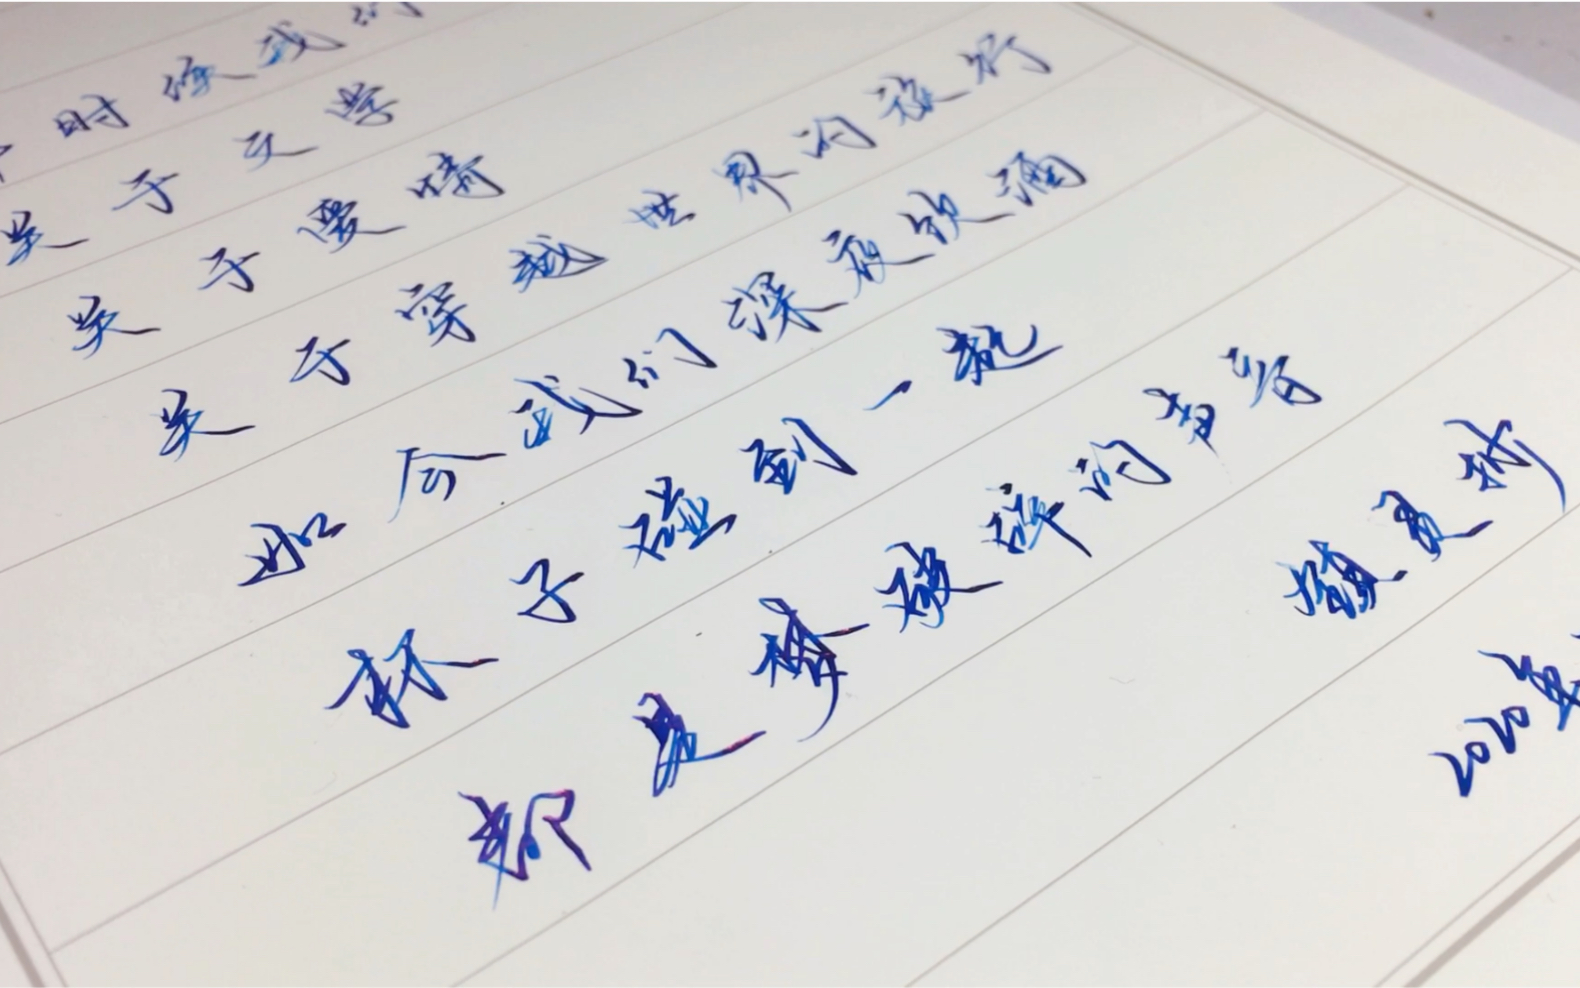 时候我们
关于文学
关于爱情
关于穿越世界的旅行
如今我们深夜饮酒
杯子碰到一起
都是梦破碎的声音
2020年